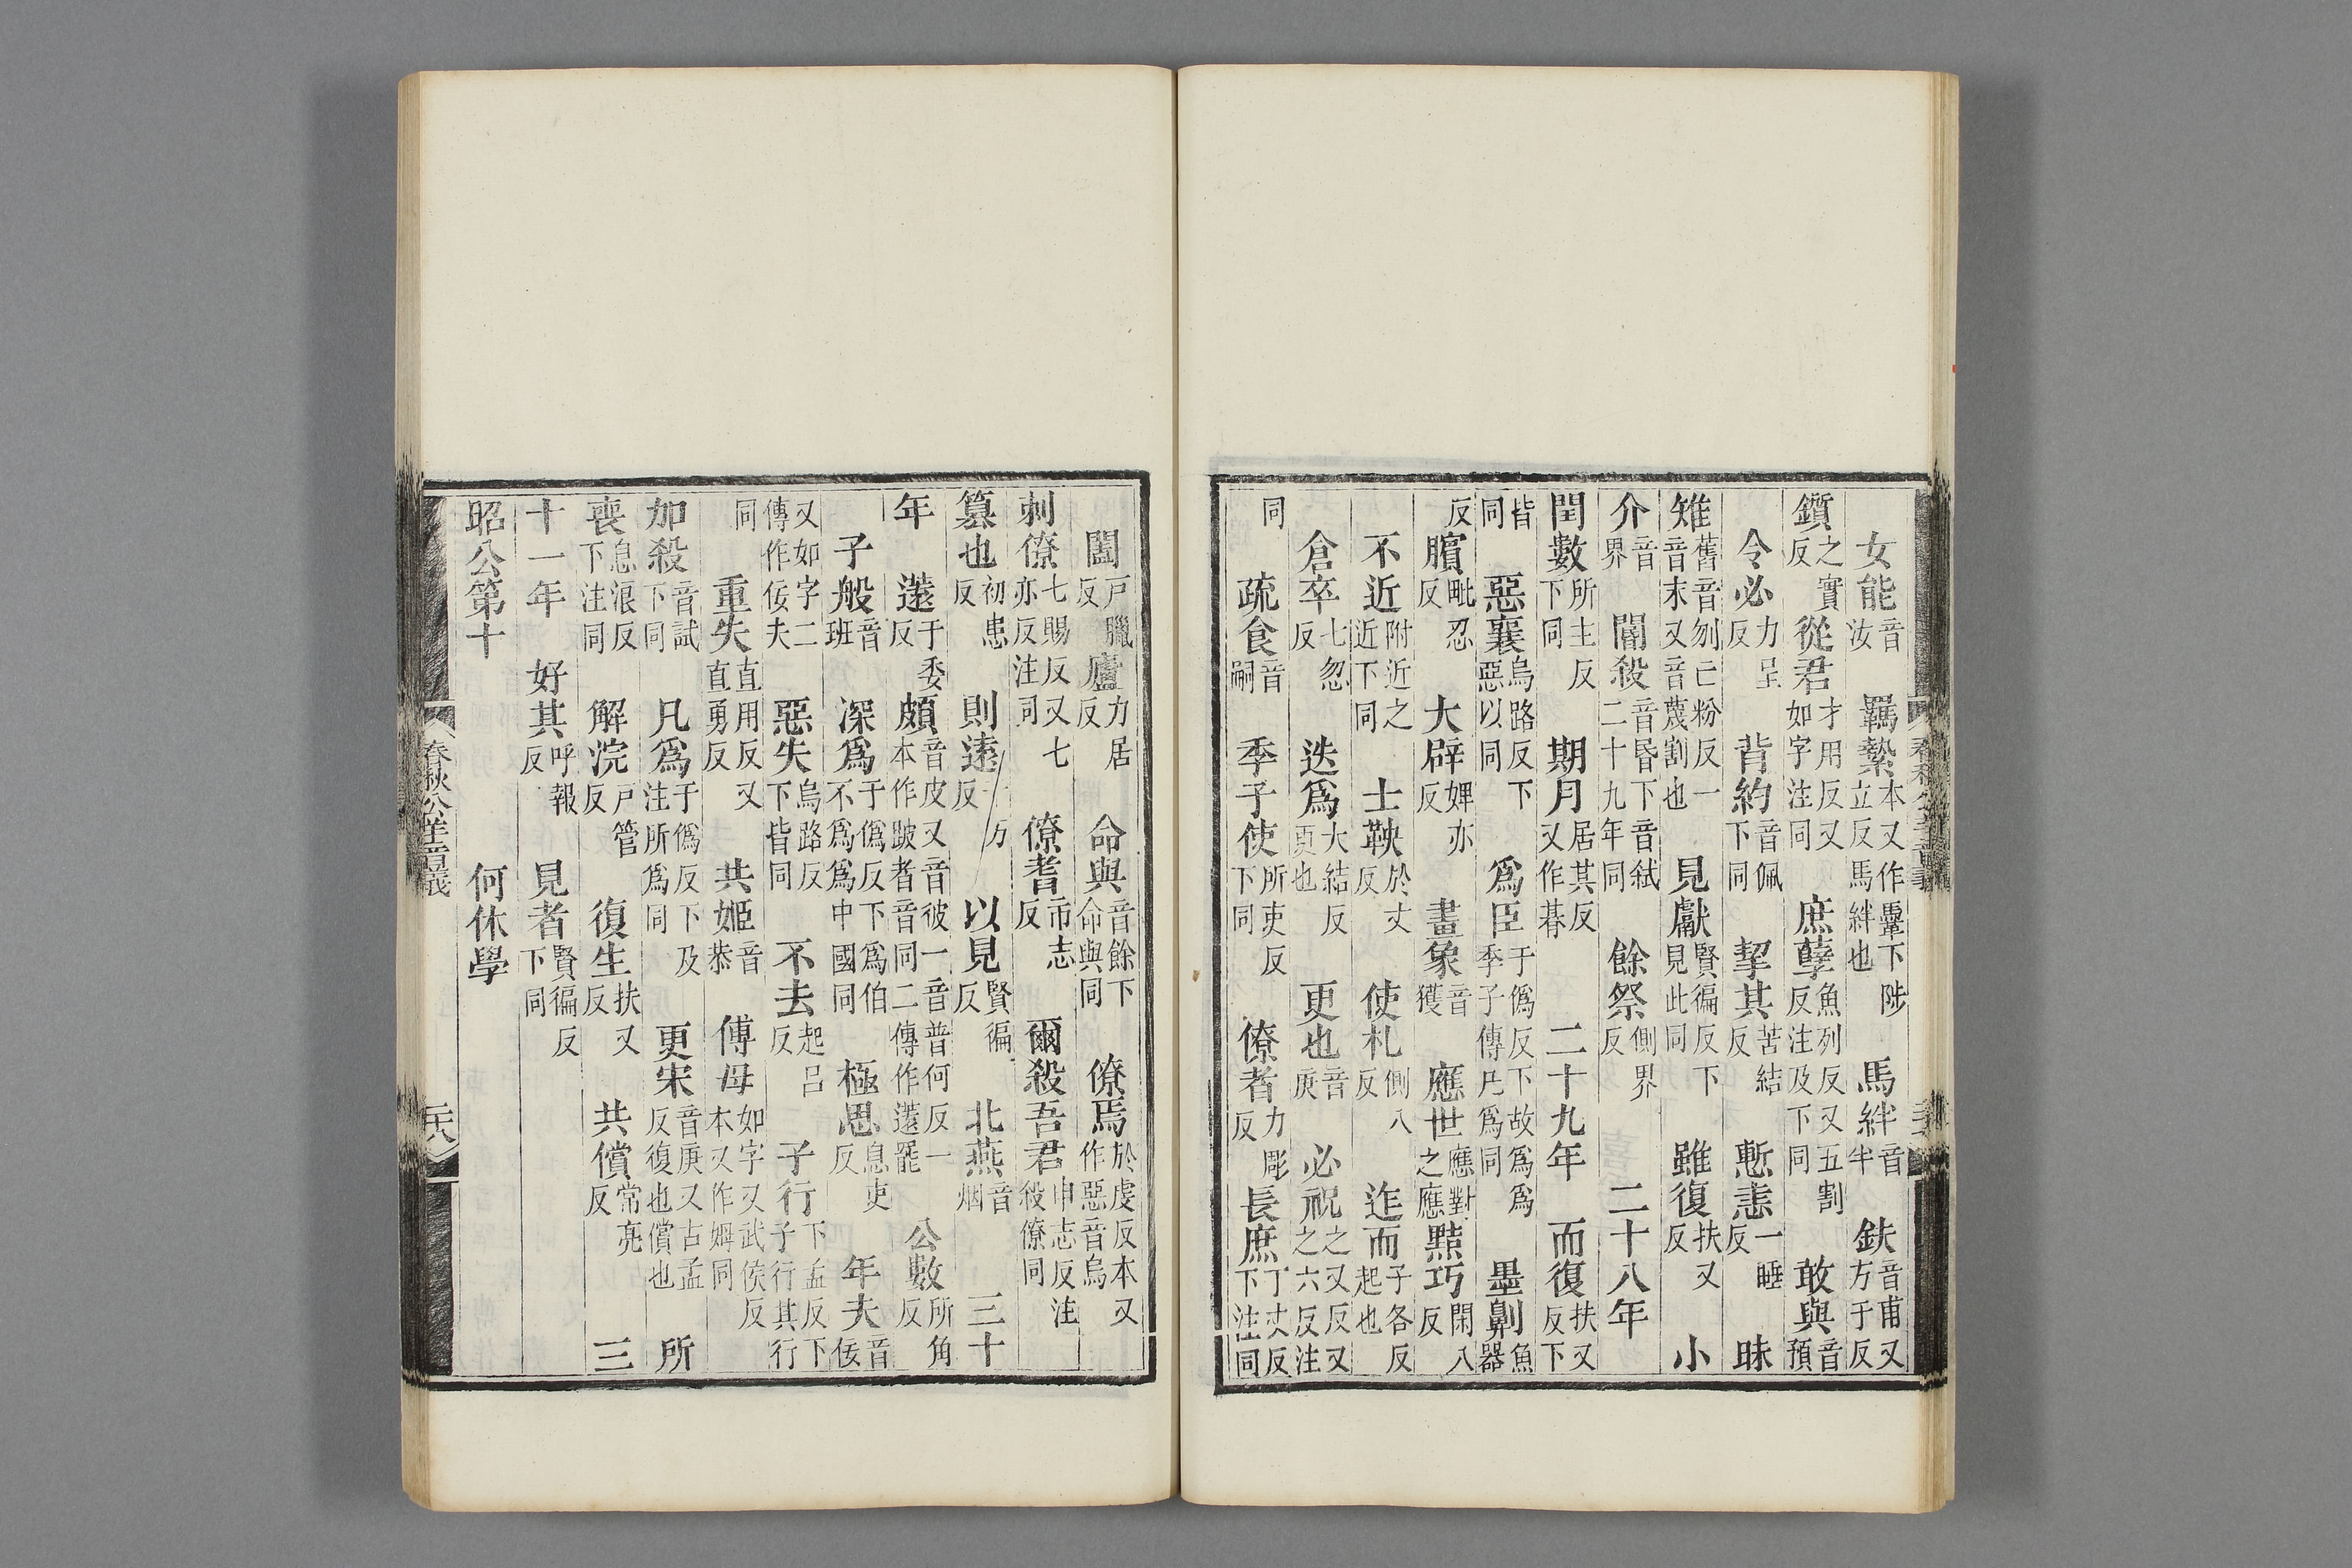 女能音汝 羈縶本又作馽下陟立反馬絆也 馬絆音半 鈇音甫又方于反
鑕之實反 從君才用反又如字注同 庶孽魚列反又五割反注及下同 敢與音預
令必力呈反 背約音佩下同 挈其苦結反 慙恚一睡反 昧
雉舊音刎亡粉反一音末又音蔑割也 見獻賢徧反下見此同 雖復扶又反 小
介音界 閽殺音昏下音弑二十九年同 餘祭側界反 二十八年
閏數所主反下同 期月居其反又作朞 二十九年 而復扶又反下
皆同 惡襄烏路反下惡以同 爲臣于僞反下故爲爲季子傳凡爲同 墨劓魚器
反 臏毗忍反 大辟婢亦反 畫象音獲 應世應對之應 黠巧閑八反
不近附近之近下同 士鞅於丈反 使札側八反 迮而子各反起也
倉卒七忽反 迭爲大結反更也 更也音庚 必祝之又反又之六反注
同 疏食音嗣 季子使所吏反下同 僚者力彫反 長庶丁丈反下注同
闔戶臘反 廬力居反 命與音餘下命與同 僚焉於虔反本又作惡音烏
刺僚七賜反又七亦反注同 僚耆市志反 爾殺吾君申志反注殺僚同
篡也初患反 則遠于万反 以見賢徧反 北燕音烟 三十
年 薳于委反 頗音皮又音彼一音普何反一本作跛者音同二傳作薳罷 公數所角反
子般音班 深爲于僞反下爲伯不爲爲中國同 極思息吏反 年夫音佞
又如字二傳作佞夫 惡失烏路反下皆同 不去起呂反 子行下孟反下子行其行
同 重失直用反又直勇反 共姬音恭 傅母如字又武侯反本又作姆同
加殺音試下同 凡爲于僞反下及注所爲同 更宋音庚又古孟反復也償也 所
喪息浪反下注同 解浣戶管反 復生扶又反 共償常亮反 三
十一年 好其呼報反 見者賢徧反下同
昭公第十 何休學
春秋公羊音義 二十八